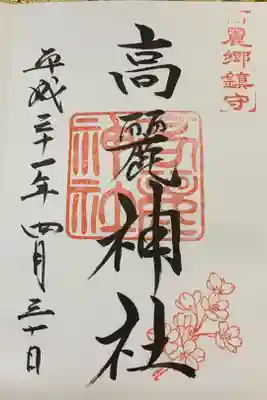 高麗郷鎮守
高麗神社
平成三十一年四月三十日